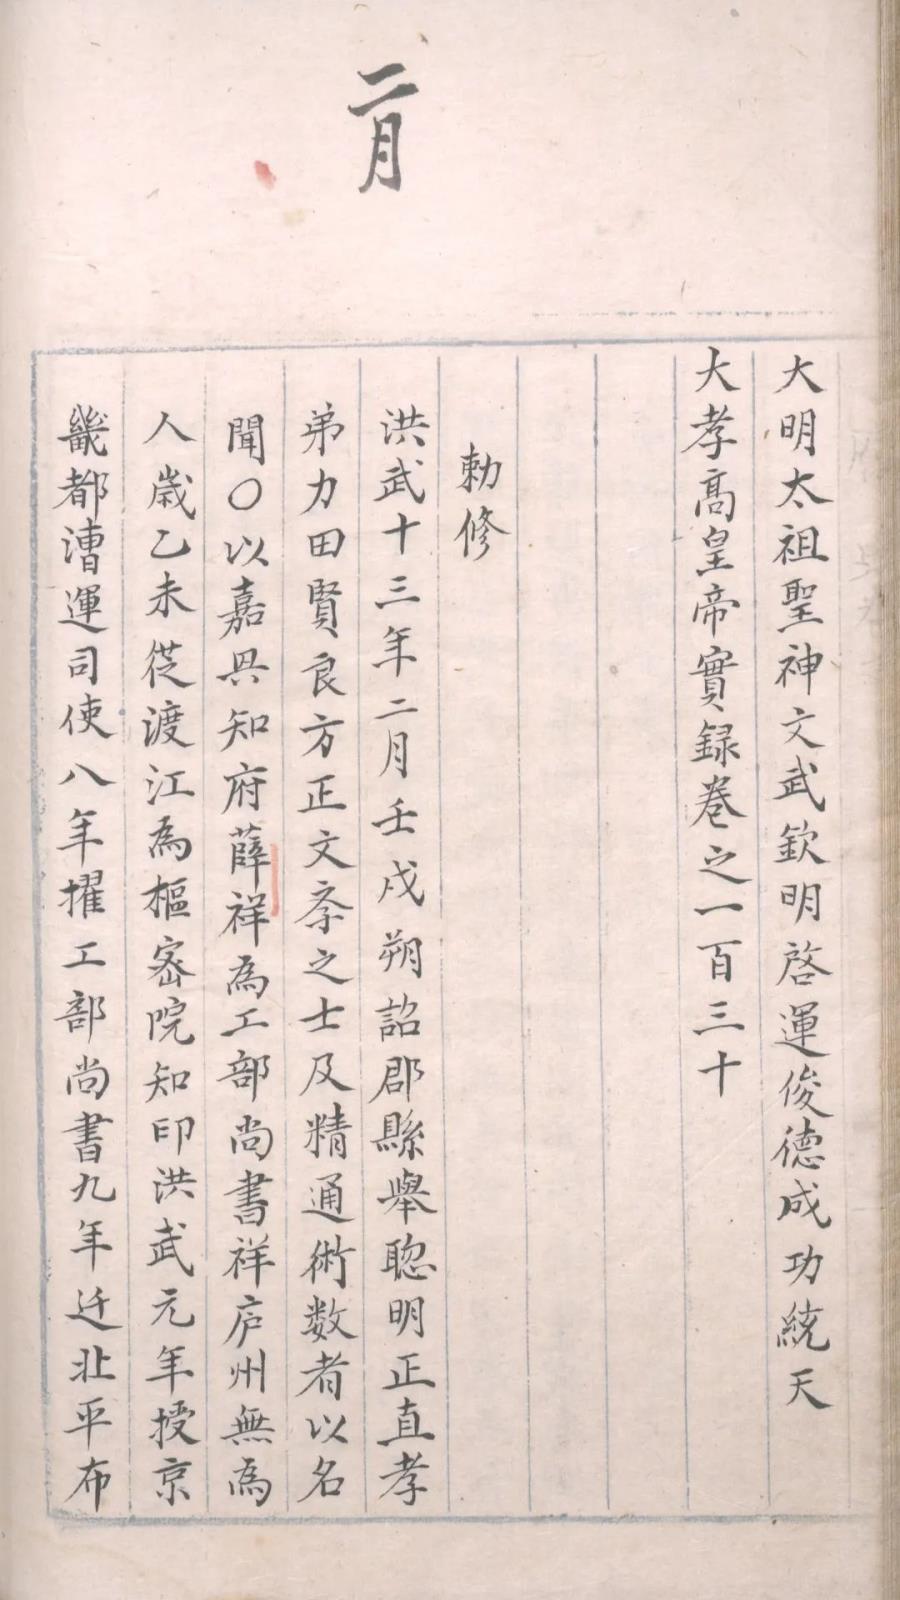 二月
大明太祖聖神文武欽明啓運俊德成功統天
大孝髙皇帝實録卷之一百三十
勅修
洪武十三年二月壬戌朔詔郡縣舉聦明正直孝
弟力田賢良方正文斈之士及精通術数者以名
聞〇以嘉兴知府薛祥為工部尚書祥庐州無為
人歲乙未從渡江為樞宻院知印洪武元年授京
畿都漕運司使八年擢工部尚書九年迁北平布